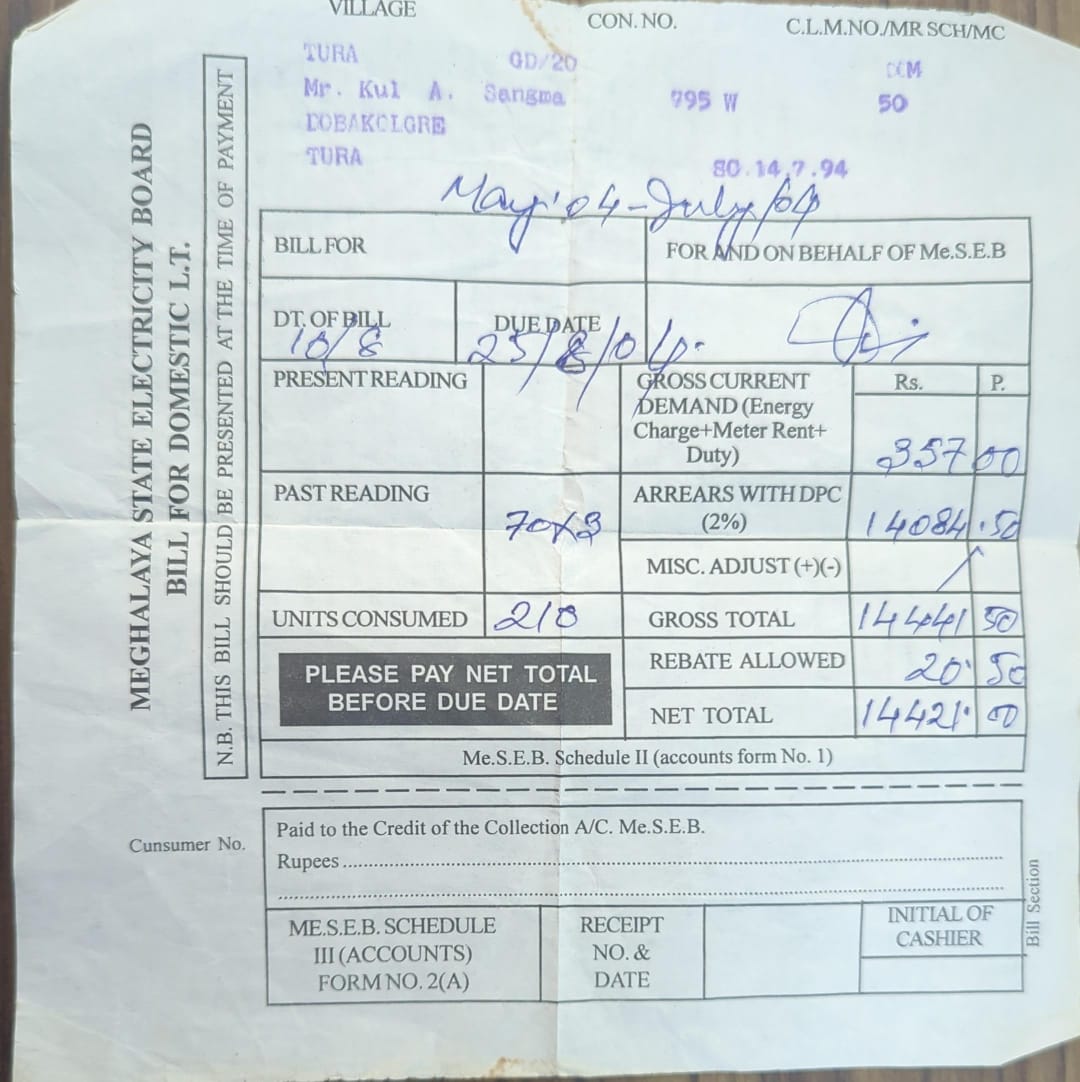 VILLAGE CON. NO. C.L.M.NO./MR SCH/MC
TURA GD/20 CCM
Mr. Kul A. Sangma 795 W 50
DOBAKOLGRE
TURA 80.14.7.94
May'04-July/04
MEGHALAYA STATE ELECTRICITY BOARD
BILL FOR DOMESTIC L.T.
N.B. THIS BILL SHOULD BE PRESENTED AT THE TIME OF PAYMENT
BILL FOR FOR AND ON BEHALF OF Me.S.E.B
DT. OF BILL DUE DATE
10/8 25/8/04.
PRESENT READING GROSS CURRENT Rs. P.
DEMAND (Energy
Charge+Meter Rent+
Duty) 357 00
PAST READING ARREARS WITH DPC
70x3 (2%) 14084.50
MISC. ADJUST (+)(-) /
UNITS CONSUMED 210 GROSS TOTAL 14441 50
PLEASE PAY NET TOTAL REBATE ALLOWED 20. 50
BEFORE DUE DATE NET TOTAL 14421. 00
Me.S.E.B. Schedule II (accounts form No. 1)
Cunsumer No.
Paid to the Credit of the Collection A/C. Me.S.E.B.
Rupees
ME.S.E.B. SCHEDULE RECEIPT INITIAL OF
III (ACCOUNTS) NO. & CASHIER
FORM NO. 2(A) DATE
Bill Section